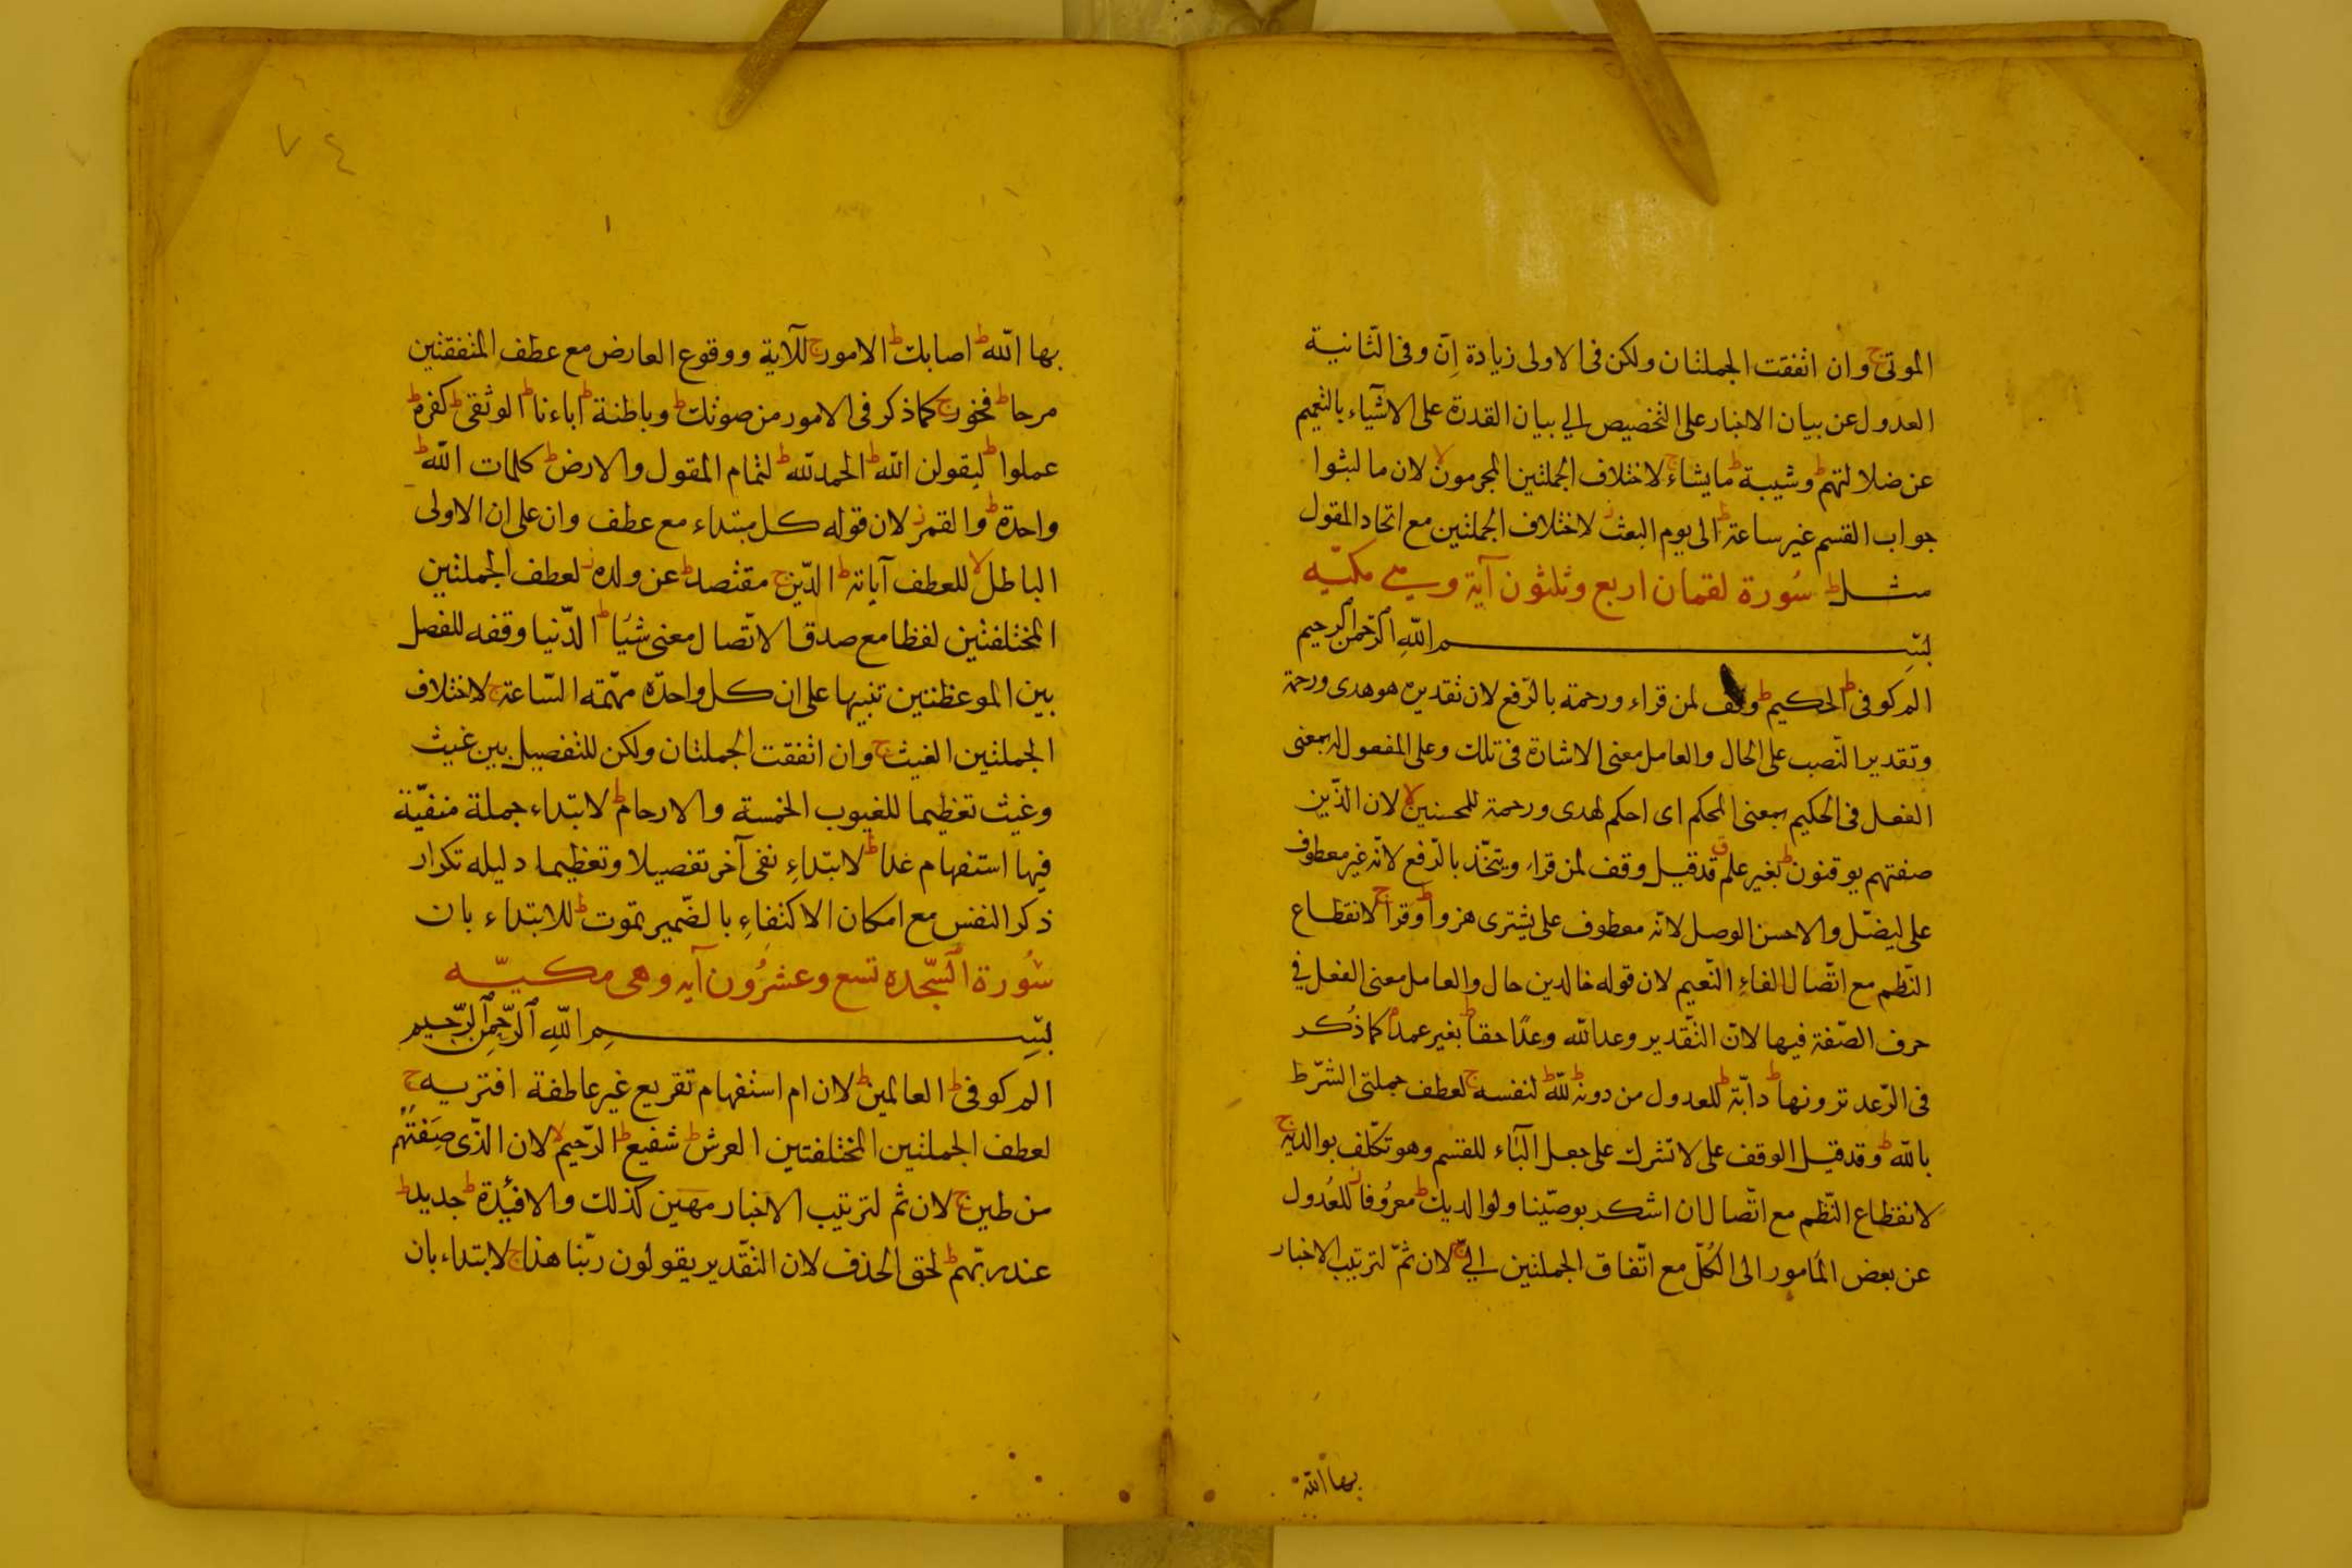 الموتى ج وان اتفقت الجملتان ولكن فى الاولى زيادة اِنّ وفى الثّانية
العدول عن بيان الاخبار على التخصيص الي بيان القدرة على الاشيآء بالتعميم
عن ضلالتهم ط وشيبة ط مايشاء ج لاختلاف الجملتين المجرمون لا لان ما لبثوا
جواب القسم غير ساعة ط الى يوم البعث ز لاختلاف الجملتين مع اتحاد المقول
مثل ط سُورة لقمان اربع وثلثون آية وهي مكيّه
بسم اللّهِ الرّحمن الرحيم
الم كوفى ط الحكيم ط وقف لمن قراء ورحمة بالرّفع لان تقديره هو هدى ورحمة
وتقدير النّصب على الحال والعامل معنى الاشارة فى تلك وعلى المفعول له بمعنى
الفعل فى الحكيم بمعنى المحكم اى احكم لهدى ورحمة للمحسنين لا لان الذّين
صفتهم يوقنون ط بغير علم ق قد قيل وقف لمن قراء ويتخّذ بالرّفع لانّه غير معطوف
على ليضّل والاحسن الوصل لانّه معطوف على يشترى هزوا ط وقرا ج لانقطاع
النّظم مع اتّصال الفاءِ النّعيم لان قوله خالدين حال والعامل معنى الفعل في
حرف الصّفة فيها لانّ التّقدير وعد الله وعدًا حقا ط بغير عمد كما ذُكر
فى الرّعد ترونها ط دابّة ط للعدول من دونه ط للّه ط لنفسه ج لعطف جملتى الشّرط
باللّه ط وقد قيل الوقف على لا تشرك على جعل الباء للقسم وهو تكلّف بوالديه ج
لانقطاع النّظم مع اتّصال ان اشكر بوصّينا ولوالديك ط معرُوفا ز للعُدول
عن بعض المَامور الى الكُلّ مع اتّفاق الجملتين اليّ ج لان ثمّ لترتيب الاخبار
بها اللّه
٧٤
بها اللّه ط اصابك ط الامور ج للآية ووقوع العارض مع عطف المتفقتين
مرحا ط فخور ج كما ذكر فى الامور من صوتك ط وباطنة ط اباءنا ط الوثقى ط كفره ط
عملوا ط ليقولن اللّه ط الحمد للّه ط لتمام المقول والارض ط كلمات اللّه ط
واحدة ط والقمر ز لان قوله كل مبتداء مع عطف وان على ان الاولى
الباطل لا للعطف آياته ط الدّين ج مقتصد ط عن ولده ز لعطف الجملتين
المختلفتين لفظا مع صدق الاتّصال معنى شيُا ط الدّنيا وقفه للفصل
بين الموعظتين تنبيها على ان كل واحدّه مهّمة السّاعة ج لاختلاف
الجملتين الغيث ج وان اتفقت الجملتان ولكن للتفصيل بين غيث
وغيث تعظيما للغيوب الخمسة والارحام ط لابتداء جملة منفيّة
فيها استفهام غدا ط لابتداءِ نفى آخر تفصيلا وتعظيما دليله تكرار
ذكر النفس مع امكان الاكتفاءِ بالضّمير تموت ط للابتداء بان
سُورة السّجده تسع وعشرُون آيه وهى مكيّه
بسم اللّهِ الرّحمن الرّحيم
الم كوفى ط العالمين ط لان ام استفهام تقريع غير عاطفة افتريه ج
لعطف الجملتين المختلفتين العرش ط شفيع ط الرّحيم لا لان الذّى صِفتُهم
من طين ج لان ثم لترتيب الاخبار مهين كذلك والافئِدة ط جديد ط
عند ربّهم ط لحق الحذف لان التّقدير يقولون ربّنا هذا ج لابتداء بان